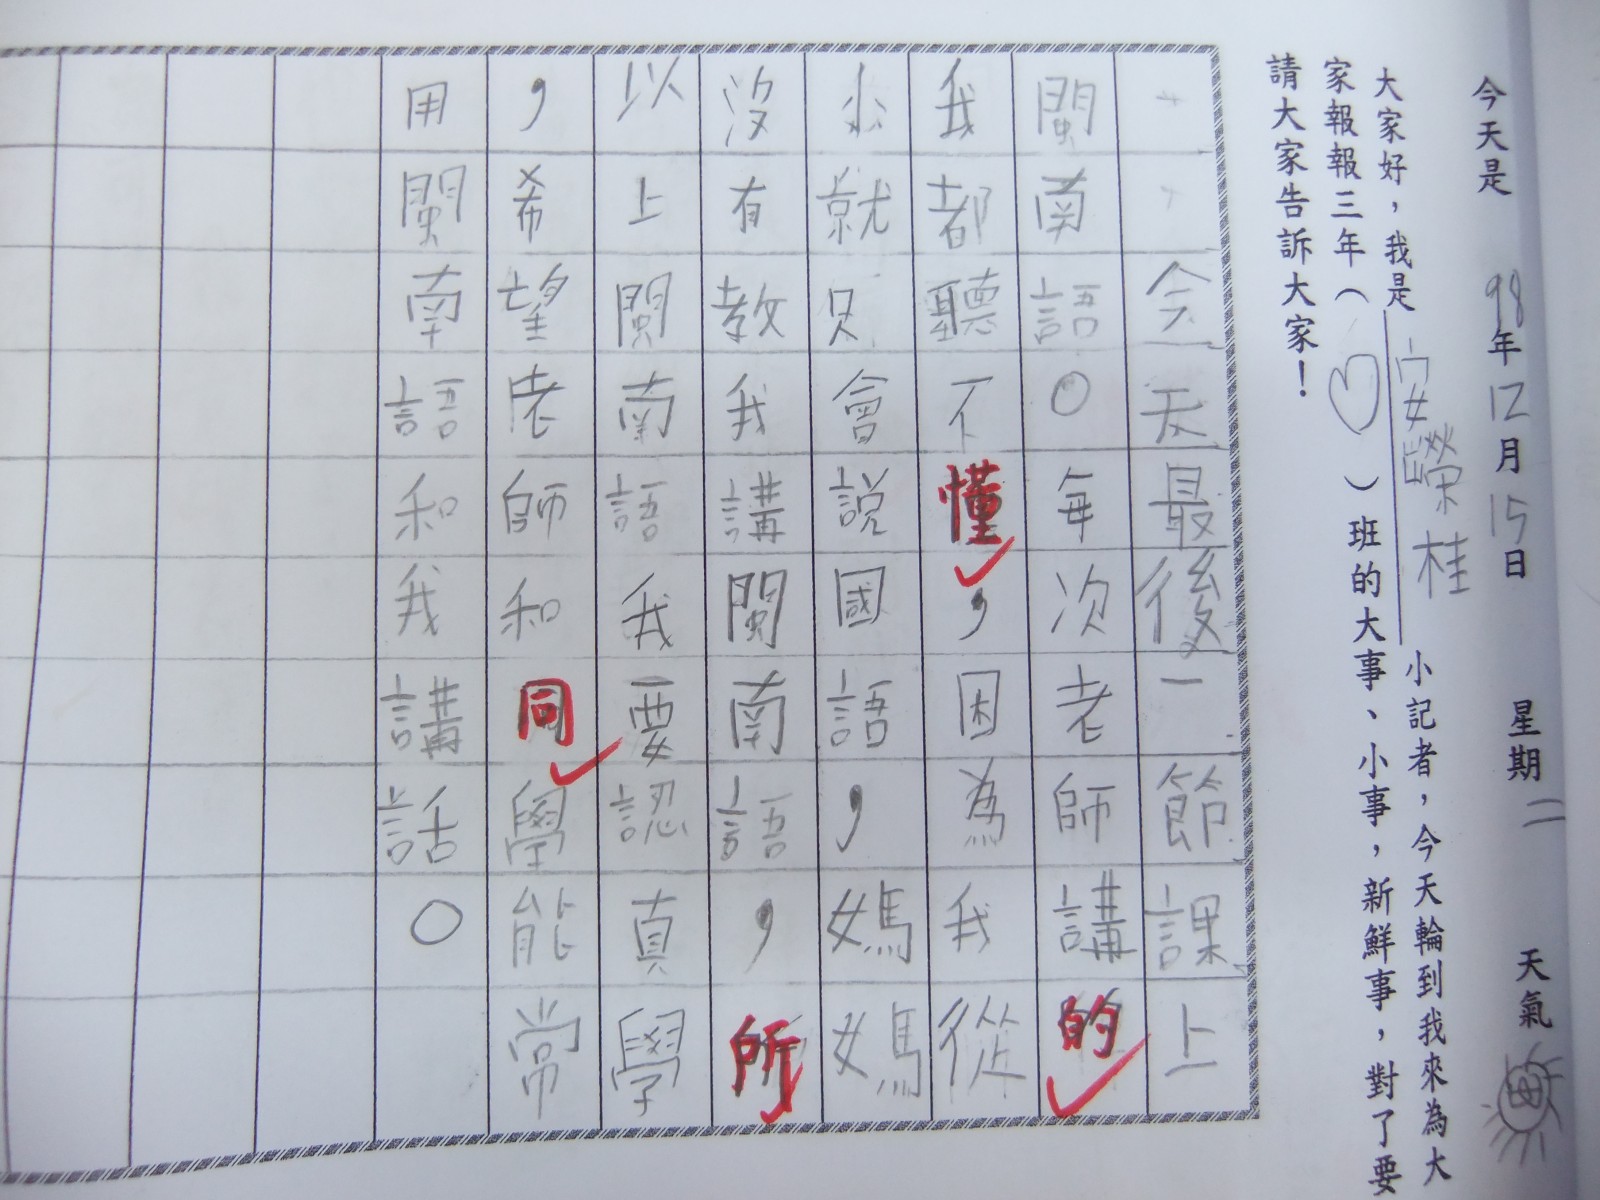 今天是 98年12月15日 星期二 天氣
大家好，我是安嶸桂小記者，今天輪到我來為大
家報報三年（♡）班的大事、小事，新鮮事，對了要
請大家告訴大家！
今天最後一節課上
閩南語。每次老師講的
我都聽不懂，因為我從
小就只會說國語，媽媽
沒有教我講閩南語，所
以上閩南語我要認真學
，希望老師和同學能常
用閩南語和我講話。